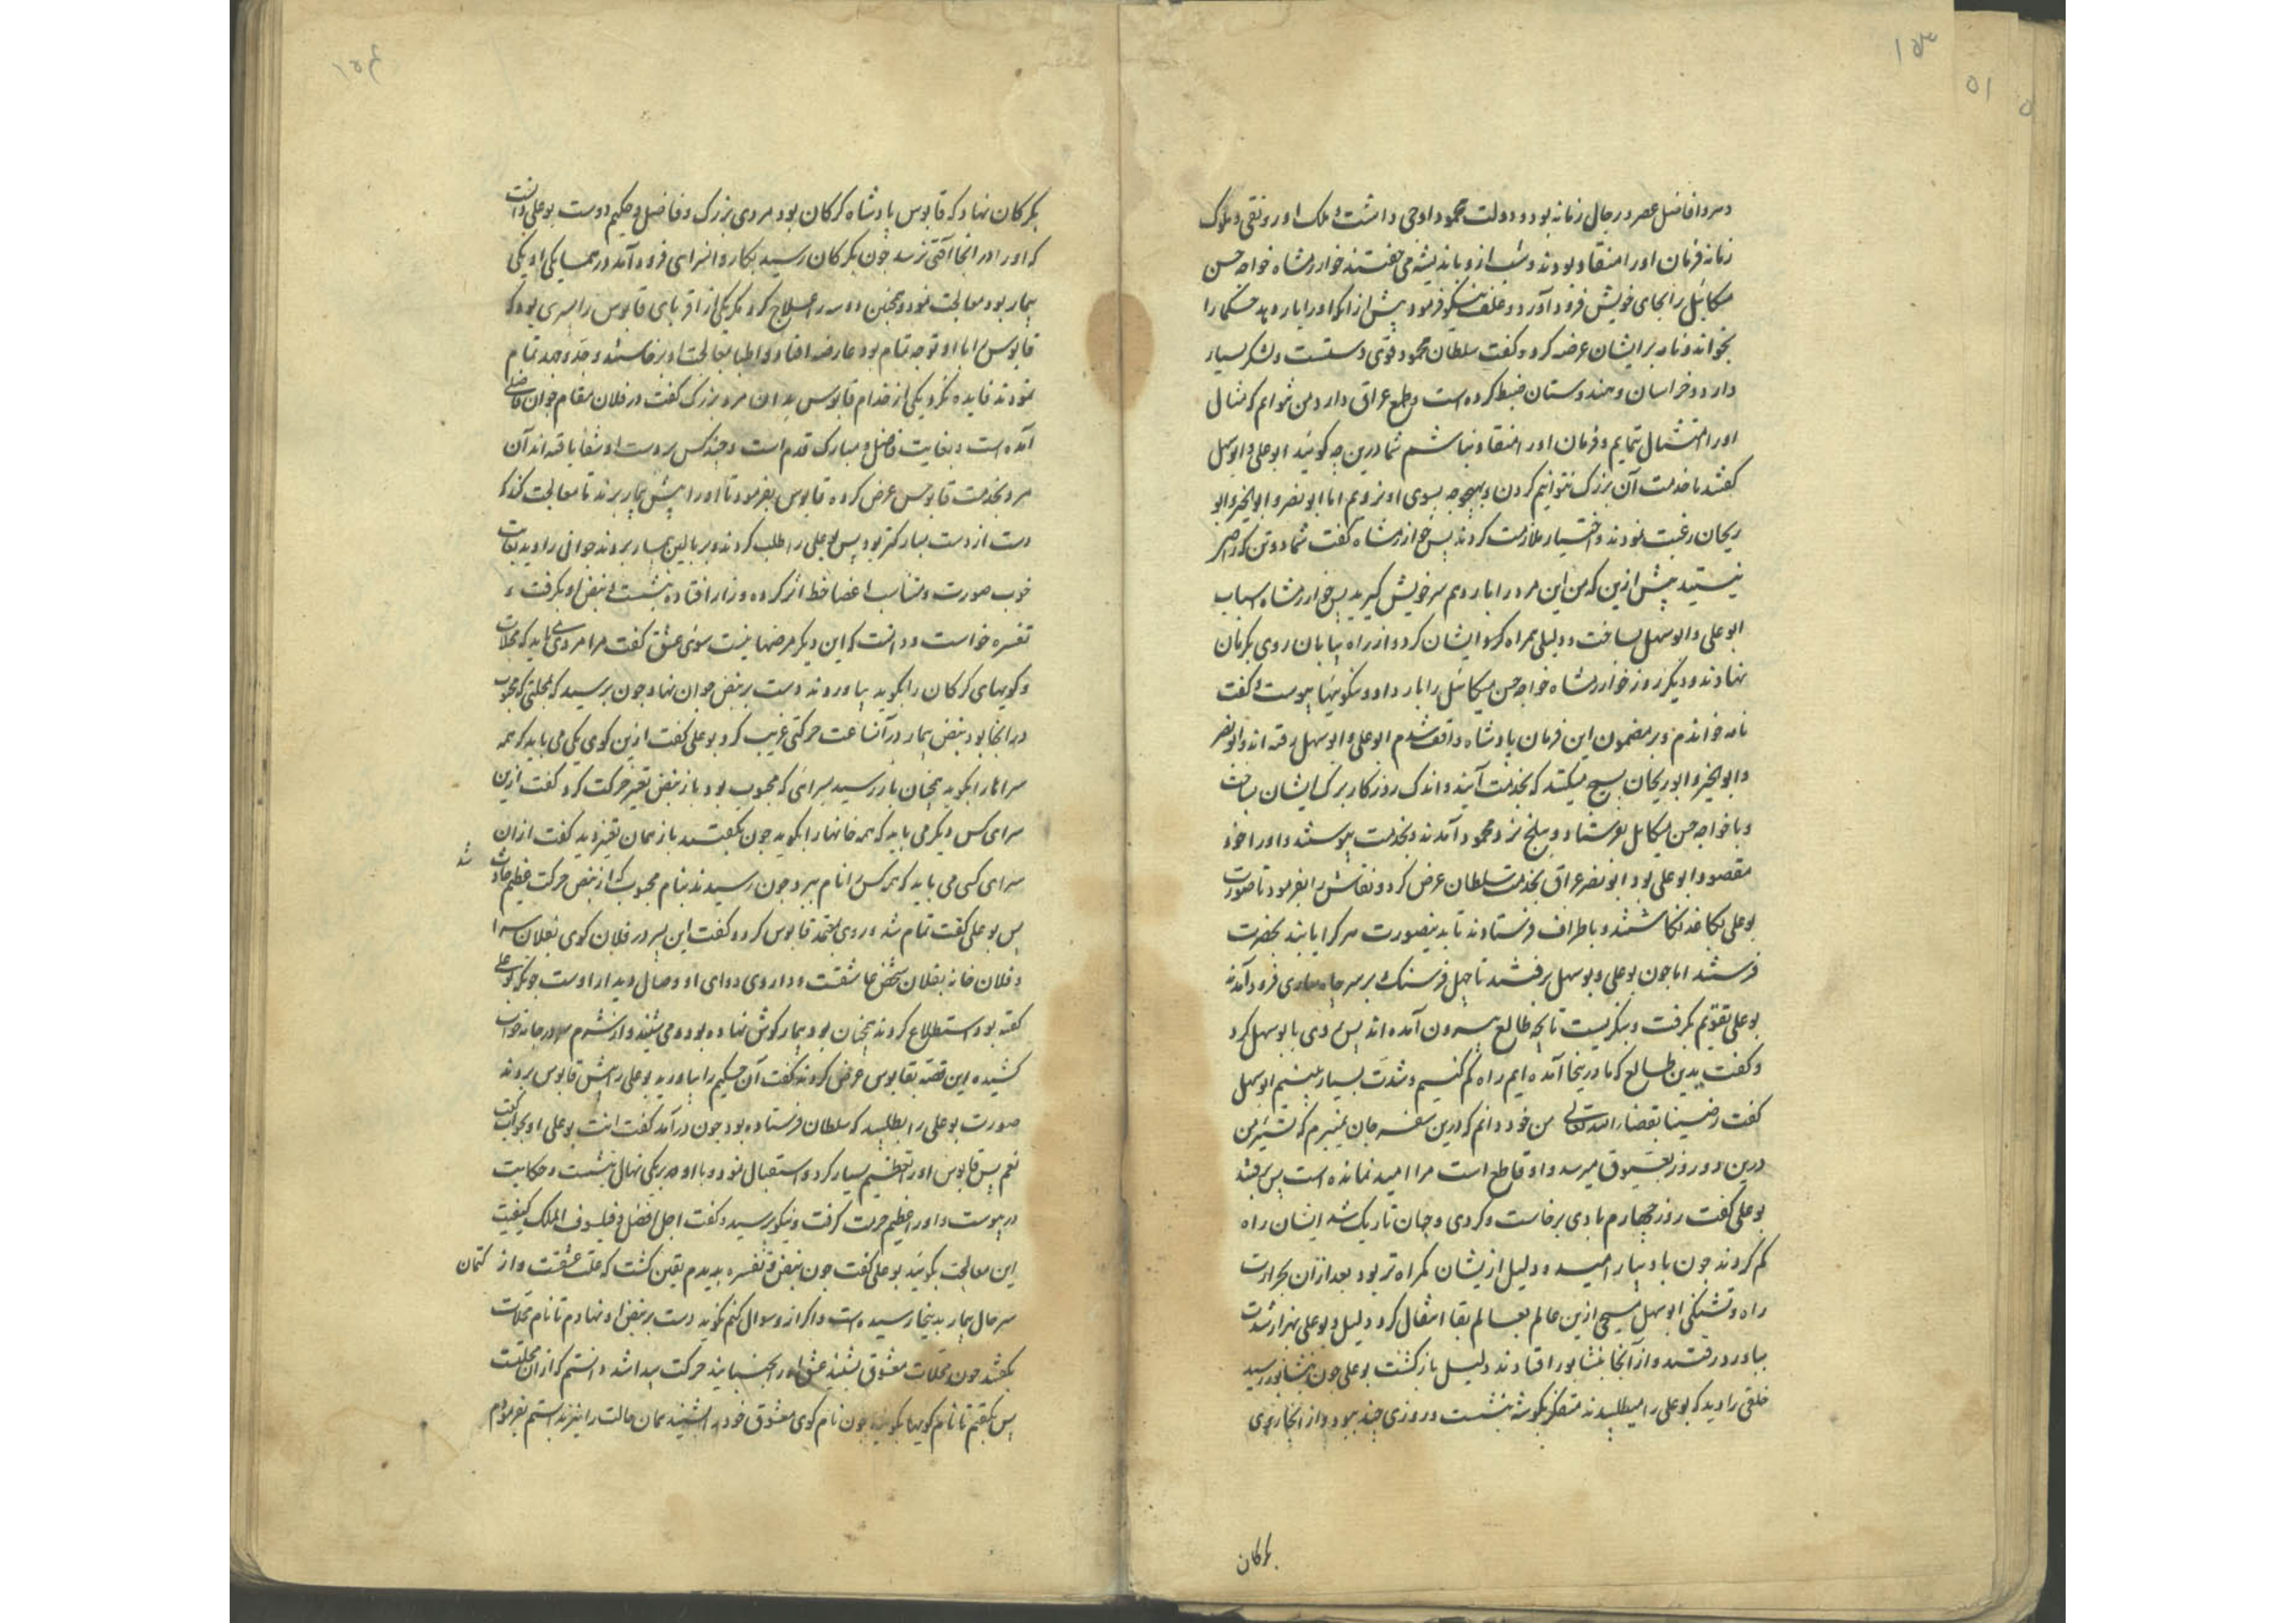 ۱۵۳
و مرد افاضل عصر و رجال زمانه بود و دولت محمود اوجی داشت و ملک او رونقی و ملوک
زمانه فرمان او را منقاد بودند و شب ازو باندیشه می خفتند خوارزمشاه خواجه حسن
میکائیل را بجای خویش فرود آورد و علف نیکو فرمود پیش از انکه او را بار دهد حکما را
بخواند و نامه بر ایشان عرضه کرد و گفت سلطان محمود قوی دستست و لشکر بسیار
دارد و خراسان و هندوستان ضبط کرده است و طمع عراق دارد من نتوانم که مثال
او را امتثال ننمایم و فرمان او را منقاد نباشم شما درین چه گوئید ابو علی و ابو سهل
گفتند ما خدمت آن بزرگ نتوانیم کردن و بهیچ وجه بسوی او نرویم اما ابو نصر و ابو الخیر و ابو
ریحان رغبت نمودند و اختیار ملازمت کردند پس خوارزمشاه گفت شما دو تن که راضی
نیستید پیش ازین که من این مرد را بار دهم سر خویش گیرید پس خوارزمشاه اسباب
ابو علی و ابو سهل بساخت و دلیلی همراه ایشان کرد و از راه بیابان روی بکرکان
نهادند و دیگر روز خوارزمشاه خواجه حسن میکائیل را بار داد و نیکوئیها پیوست و گفت
نامه خواندم و بر مضمون این فرمان پادشاه واقف شدم ابو علی و ابو سهل رفته اند و ابو نصر
و ابو الخیر و ابو ریحان بسیج میکنند که بخدمت آیند و اندک روزکار برک ایشان بساخت
و با خواجه حسن میکائیل بفرستاد و ببلخ نزد محمود آمدند و بخدمت پیوستند و او را خود
مقصود ابو علی بود ابو نصر عراق بخدمت سلطان عرض کرد و نقاش را بفرمود تا صورت
بو علی بکاغذ نکاشتند و باطراف فرستادند تا بدینصورت هر کرا یابند بحضرت
فرستند اما چون بو علی و بو سهل برفتند تا چهل فرسنک بر سر چاه ساری فرود آمدند
بو علی تقویم بکرفت و بنکریست تا بچه طالع بیرون آمده اند پس روی بابو سهل کرد
و گفت بدین طالع که ما در اینجا آمده ایم راه کم کنیم و شدت بسیار بینیم ابو سهل
گفت رضینا بقضاء الله تعالی من خود دانم که درین سفر جان نبرم که تسییر من
درین دو روز بعیوق میرسد و او قاطع است مرا امید نمانده است پس برفتند
بو علی گفت روز چهارم بادی برخاست و کردی و جهان تاریک شد ایشان راه
کم کردند چون باد بیارامید و دلیل ازیشان کمراه تر بود بعد ازان بحرارت
راه و تشنکی ابو سهل مسیحی ازین عالم بعالم بقا انتقال کرد و دلیل و بو علی بهزار شدت
بباورد رفتند و از آنجا بنشابور افتادند دلیل باز کشت بو علی چون بنشابور رسید
خلقی را دید که بو علی را میطلبیدند متفکر بکوشه بنشست و روزی چند ببود و از انجا روی
بکرکان
۱۵۴
بکرکان نهاد که قابوس پادشاه کرکان بود مردی بزرک و فاضل و حکیم دوست بو علی دانست
که او را در انجا آفتی نرسد چون بکرکان رسید بکاروانسرای فرود آمد در همسایکی او یکی
بیمار بود معالجت نمود و همچنین دو سه را علاج کرد مکر یکی از اقربای قابوس را پسری بود که
قابوس را با او توجه تمام بود عارضه افتاد و اطبا بمعالجت او برخاستند و جد و جهد تمام
نمودند فایده نکرد یکی از خدام قابوس بدان مرد بزرک گفت در فلان مقام جوان فاضلی
آمده است و بغایت فاضل و مبارک قدم است و چند کس بر دست او شفا یافته اند آن
مرد بخدمت قابوس عرض کرده قابوس بفرمود تا او را پیش بیمار برند تا معالجت کند که
دست از دست مبارکتر بود پس بو علی را طلب کردند و بر بالین بیمار بردند جوانی را دید بغایت
خوب صورت و متناسب اعضا خط اثر کرده و زار افتاده بنشست و نبض او بکرفت و
تفسره خواست و دانست که این دیکر مرضها نیست سوی عشق گفت مرا مردی باید که محلات
و کویهای کرکان را بکوید بیاوردند دست بر نبض جوان نهاد چون برسید که بمحلتی که محبوب
در انجا بود نبض بیمار در آنساعت حرکتی غریب کرد بو علی گفت ازین کوی یکی می باید که همه
سراها را بکوید همچنان باز رسید بسرائی که محبوب بود باز نبض تغیر حرکت کرد گفت ازین
سرای کس دیکر می باید که همه خانها را بکوید چون بکفتند باز همان تغیر دید گفت ازان
سرای کسی می باید که همه کس را نام ببرد چون رسیدند بنام محبوب از نبض حرکت عظیم حادث شد
پس بو علی گفت تمام شد و روی بمعتمد قابوس کرد و گفت این پسر در فلان کوی بفلان سرا
و فلان خانه بفلان شخص عاشقست و داروی دوای او وصال و دیدار اوست چونکه بو علی
گفته بود استطلاع کردند همچنان بود بیمار کوش نهاده بود و می شنید و از شرم سر در جامه خواب
کشیده این قصه بقابوس عرض کردند گفت آن حکیم را بیاورید بو علی را پیش قابوس بردند
صورت بو علی را بطلبید که سلطان فرستاده بود چون در آمد گفت انت بو علی او بجواب گفت
نعم پس قابوس او را تعظیم بسیار کرد و استقبال نمود و با او بر یکی نهالی بنشست و حکایت
در پیوست و او را عظیم حرمت کرفت و نیکو پرسید و گفت اجل افضل و فیلسوف الملک کیفیت
این معالجت بکوئید بو علی گفت چون نبض و تفسره بدیدم یقین کشت که علت عشقست و از کتمان
سر حال بیمار بدینجا رسیده است و اکر ازو سوال کنم نکوید دست بر نبض او نهادم تا نام محلات
بکفتند چون محلات معشوق بشنید عشق او را بجنبانید حرکت پیدا شد دانستم که از ان محلتست
پس بکفتم تا نام کویها بکویند چون نام کوی معشوق خود را شنید همان حالت را نیز دانستم بفرمودم